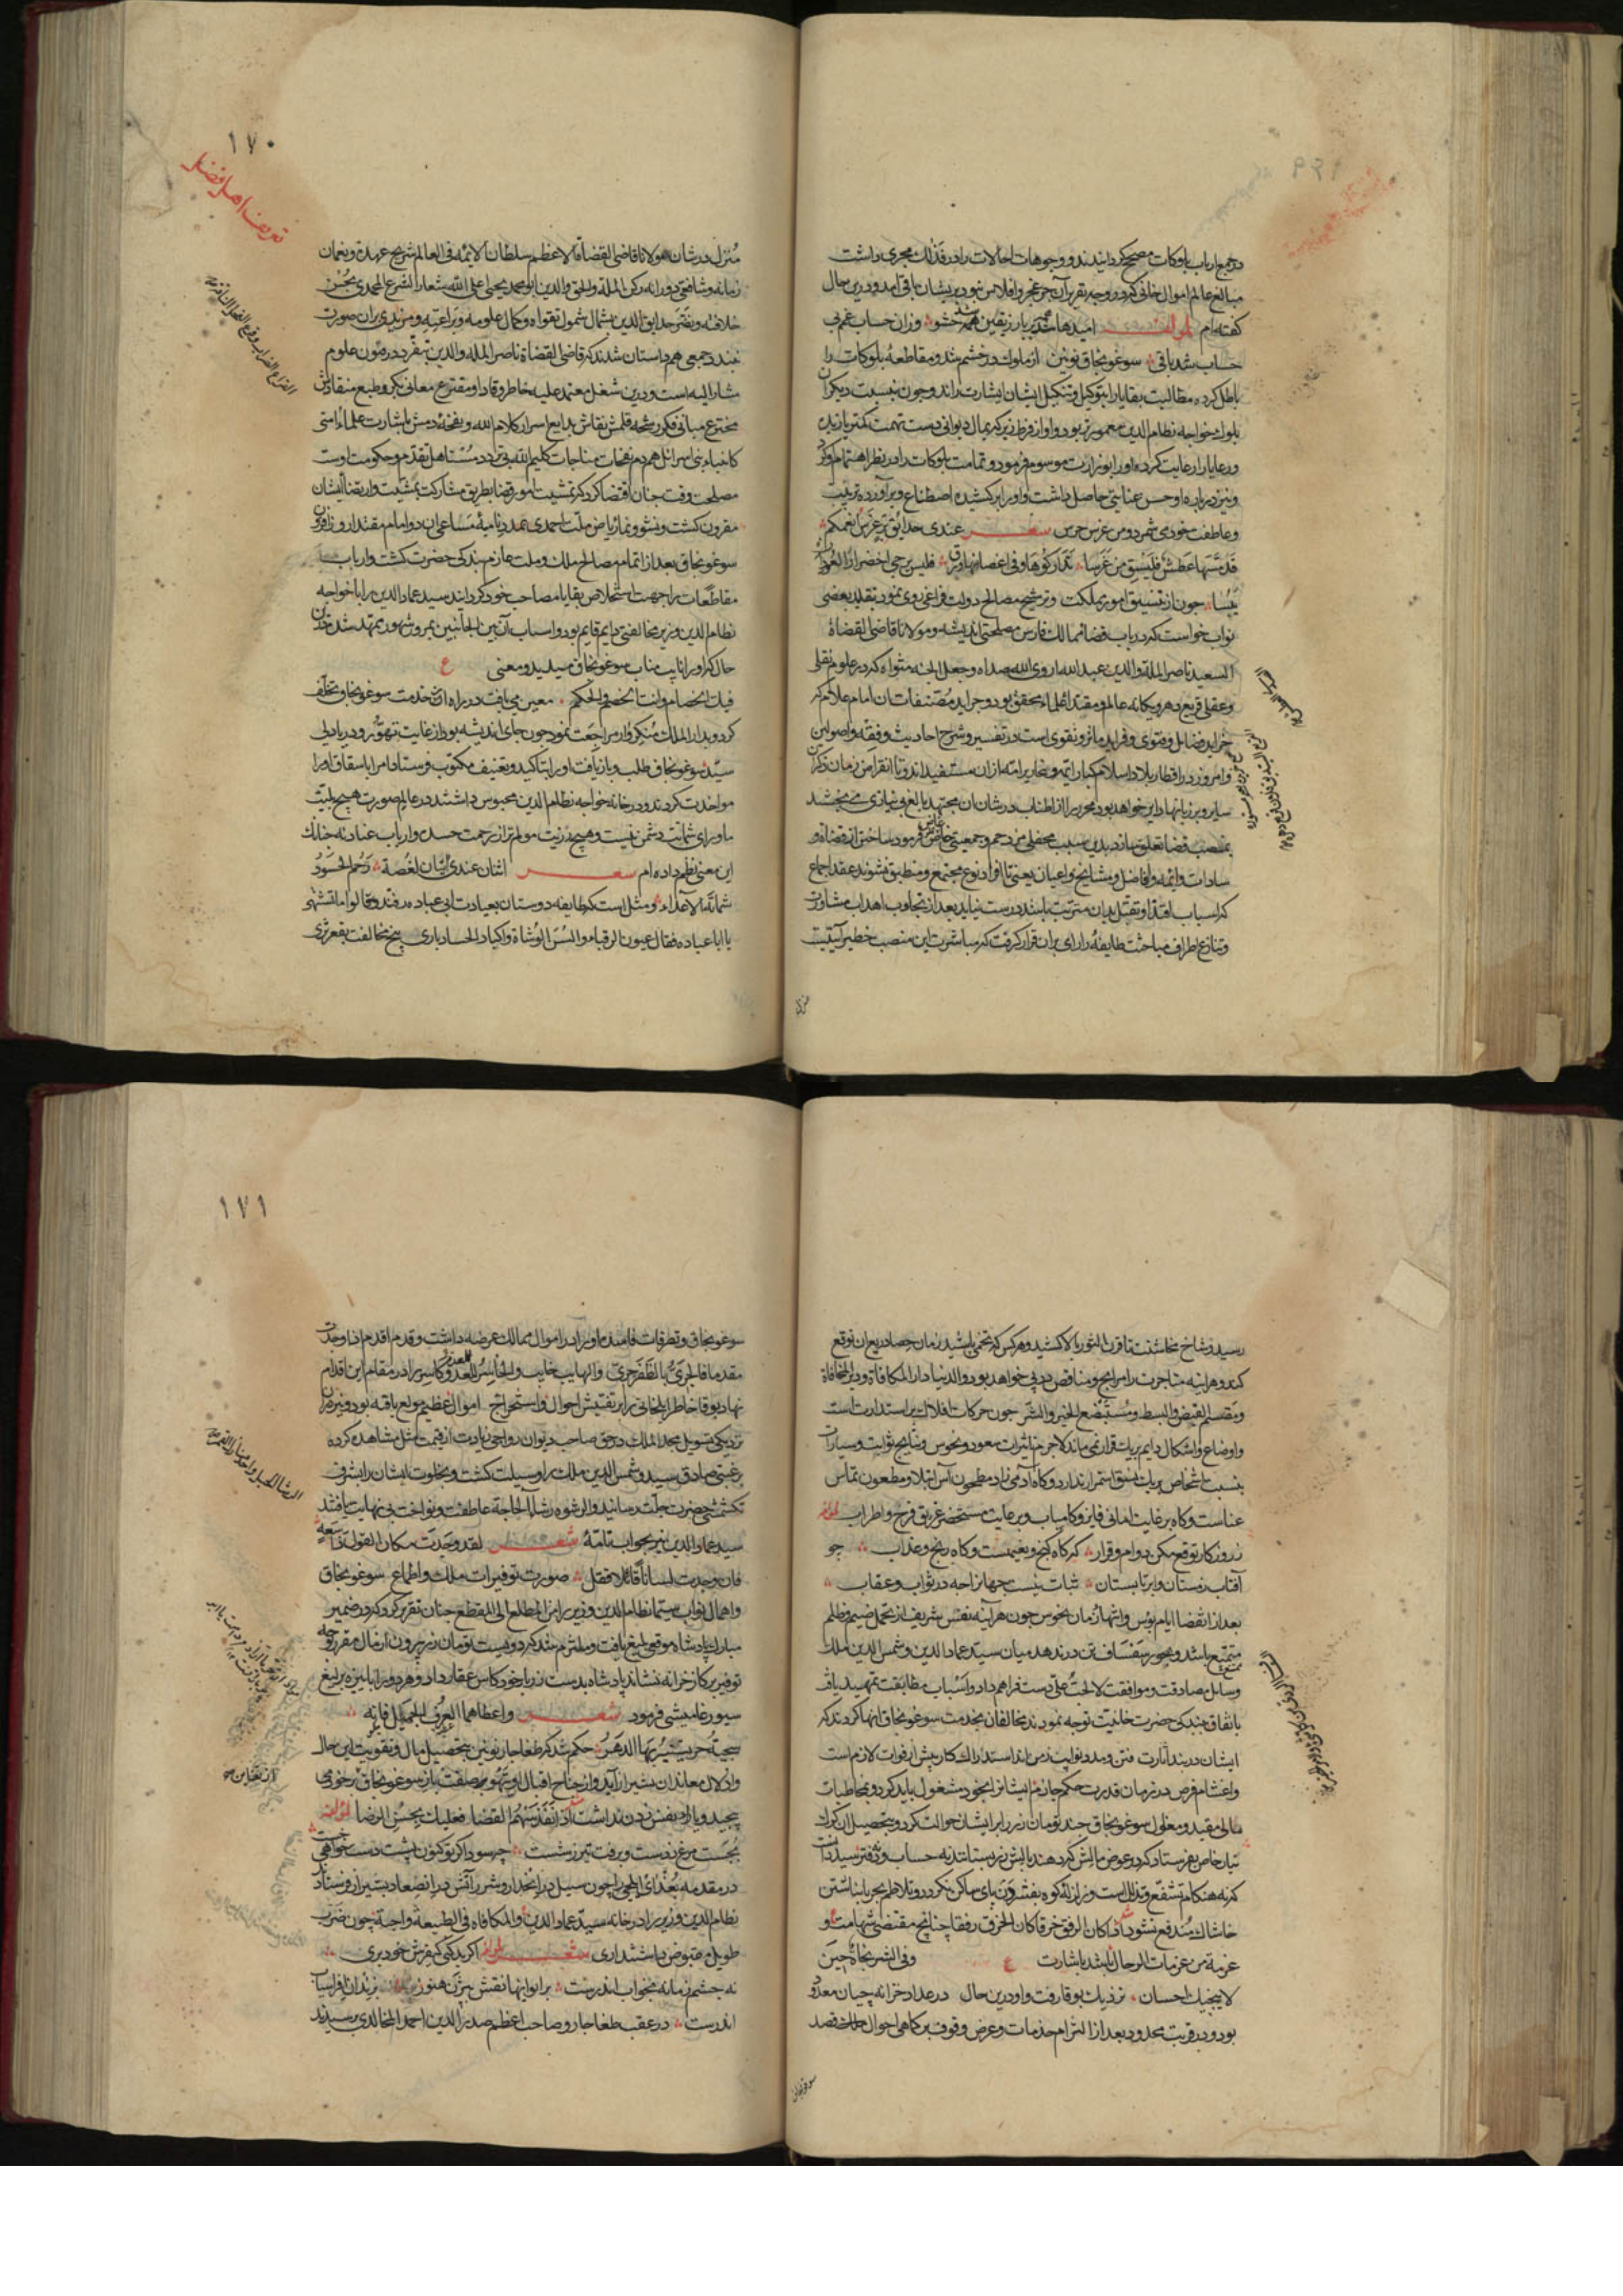 در جمع ارباب بلوکات مصحح گردانیدند و وجوهات احالات را در فذلک مجری داشت
مبالغ عالم اموال خانی کرد و وجه تقریر آن جز عجز و افلاس نبود بریشان باقی آمد و درین حال
گفته‌ام لمؤلفه امیدها شد بریار ز یقین همه حشو وزان حساب غم بی
حساب شد باقی سوغونجاق نوین از ملوک در خشم شد و مقاطعهٔ بلوکات را
باطل کرده مطالبت بقایا را بتوکیل و تنکیل ایشان اشارت راند و چون بنسبت دیگران
بلوک خواجه نظام الدین معمورتر بود و او از فرط زیرکی بمال دیوانی دست تهمت کمتر یازیده
و رعایا را رعایت کرده او را بوزارت موسوم فرمود و تمامت بلوکات را در نظر اهتمام او کرد
و نیز درباره او حسن عنایتی حاصل داشت و او را برکشیده اصطناع و برآورده تربیت
و عاطفت خود می‌شمرد و من غرس حرس شعر عندی حدایق غرس انعمکم
قد مسها عطش فلیسق من غرسا تدارکوها و فی اغصانها ورق فلیس یرجی اخضرار العود
یبسا چون از تنسیق امور مملکت و ترشیح مصالح دولت فراغی روی نمود بتقلید بعضی
نواب خواست که در باب قضا ممالک فارس مصلحتی اندیشد و مولانا قاضی القضاة
السعید ناصر الملة والدین عبد الله اروی الله صداه و جعل الجنة مثواه که در علوم نقلی
و عقلی قریع دهر و یگانه عالم و مقتدا علماء محقق بود و جراید مصنفات آن امام علام که
خراید فضایل و فتوی و فراید مآثر و تقوی است در تفسیر و شرح احادیث و فقه و اصولین
و امروز در اقطار بلاد اسلام کبار ائمه و نحاریر امه ازان مستفیداند و تا انقراض زمان ذکر آن
سایر و بر زبانها دایر خواهد بود محرر را از اطناب در شان آن مجتهد بالغ بی‌نیازی می‌بخشد
بمنصب قضا تعلق سازد بدین سبب محفلی مزدحم و جمعیتی خاص فرمود ساختن از قضاة و
سادات و ائمه و افاضل و مشایخ و اعیان یعنی تا افراد نوع مجتمع و منطبق نشوند عقد اجماع
که اسباب اقتدا و تقبل بدان مترتب باشد درست نیاید بعد از تجاوب اهداب مشاورت
و تنازع اطراف مباحثت طایفه را رای بران قرار گرفت که مباشرت این منصب خطیر آیتیست
منزل
۱۷۰
تعریف اهل قضا
منزل در شان مولانا قاضی القضاة الاعظم سلطان الائمه فی العالم شریح عهده و نعمان
زمانه و شافعی دورانه رکن الملة والحق والدین ابو محمد یحیی اعلی الله شعار الشرع المحمدی بحسن
خلافته و نضر حدایق الدین بشمال شمول تقواه و کمال علومه و براعته و مزید بران صورت
بیند و جمعی هم داستان شدند که قاضی القضاة ناصر الملة والدین بتفرد در فنون علوم
مشار الیه است و درین شغل معتمد علیه خاطر وقاد او مقترع معانی بکر و طبع منقادش
مخترع مبانی فکر رشحه قلمش نقاش بدایع اسرار کلام الله و نفخهٔ دمش باشارت علماء امتی
کانبیاء بنی اسرائل هم دم نفحات مناجات کلیم الله بی تردد مستاهل تقدم و حکومت اوست
مصلحت وقت چنان اقتضا کرد که تمشیت امور قضا بطریق مشارکت بمشیت و ارتضا ایشان
مقرون گشت و نشو و نما ریاض ملت احمدی بمدد نامیهٔ مساعی آن دو امام مقتدا روز افزون
سوغونجاق بعد از اتمام مصالح ملک و ملت عازم بندگی حضرت گشت و ارباب
مقاطعات را جهت استخلاص بقایا مصاحب خود گردانید سید عماد الدین را با خواجه
نظام الدین وزیر مخالفتی دایم قایم بود و اسباب آن بین الجانبین بمرور شهور ممهد شد در آن
حال که او را نایب مناب سوغونجاق میدید و معنی ع
فیک الخصام وانت الخصم والحکم معین می‌یافت در راه از خدمت سوغونجاق تخلف
کرد و بدار الملک منکروار مراجعت نمود چون جای اندیشه بود از غایت تهور و دریادلی
سید سوغونجاق طلب و بازیافت او را بتاکید و تعنیف مکتوب فرستاد امرا باسقاق او را
مواخذت کردند و در خانه خواجه نظام الدین محبوس داشتند در عالم صورت هیچ بلیت
ماورای شماتت دشمن نیست و هیچ مذلت مولم‌تر از رحمت حسد و ارباب عناد نه چنانک
این معنی نظم داده‌ام شعر اثنان عندی یثمان لغصة رحم الحسود
شماتة الاعداء و مثل است که طایفه دوستان بعیادت ابی عباده رفتند و قالوا ما تشتهی
یا ابا عباده فقال عیون الرقباء والسن الوشاة واکباد الحساد باری بیخ مخالفت بقعر ثری
رسید و شاخ مخاشنت تا قرن الثور بالا کشید و هر کس که تخمی باشید زمان حصاد ریع آن توقع
کند و هر آینه متاجرت را مرابح و مناقص در پی خواهد بود و الدنیا دار المکافاة و دیر المجافاة
و مقسم القبض والبسط و مستبضع الخیر والشر چون حرکات افلاک بر استدارت است
و اوضاع و اشکال دایم بریک قرار نمی‌ماند لاجرم تاثیرات سعود و نحوس و نتایج ثوابت و سیارات
بنسبت اشخاص بریک نسق استمرار ندارد و گاه آدمی زاد مطحون آس ابتلا و مطعون تماس
عناست و گاه بر غایت امانی فایز و کامیاب و بر عایت مستحضر غریق فرح و اطراب لمؤلفه
ز روزگار توقع مکن دوام و قرار که گاه گنج و نعیمست و گاه رنج و عذاب چو
آفتاب زمستان و ابر تابستان ثبات نیست جهانرا چه در ثواب و عقاب
بعد از انقضا ایام بوس و انتهاء زمان نحوس چون هر آینه نفس شریف از تحمل ضیم و ظلم
متمنع باشد و بجور سفساف تن درندهد میان سید عماد الدین و شمس الدین ملک
وسایل مصادقت و موافقت لا لحب علی دست فراهم داد و اسباب مطابقت تمهید یافت
باتفاق ببندگی حضرت خانیت توجه نمودند مخالفان بخدمت سوغونجاق انها کردند که
ایشان در بند اثارت فتن و مدد نوایب زمن‌اند استدراک کار پیش از فوات لازم است
و اغتنام فرص در زمان قدرت حکم جازم ایشانرا بخود مشغول باید کرد و بمخاطبات
مالی مقید و مغلول سوغونجاق چند تومان زر را برایشان حوالت کرد و بتحصیل آن کزک
تبل خاص بفرستاد که در عوض مالش کرد هند بالش زر بستانند به حساب و دفتر سید دانست
که نه هنگام تشفع و تذلل است و زلزله کوه بفشردن پای ساکن نگردد و تلاطم بحر بانباشتن
خاشاک مندفع نشود اذا کان الرفق خرقا کان الخرق رفقا چنانچ مقتضی شهامت و
عزمة من عزمات الرجال باشد باشارت ع وفی الشر نجاة حین
لا ینجیک احسان نزدیک بوقا رفت و او درین حال در عداد خزانه‌چیان معدود
بود و در قربت محدود بعد از التزام خدمات و عرض وقوف بر کماهی احوال ممالک قصد
سوغونجاق
۱۷۱
سوغونجاق و تطرقات فاسد ما و را در اموال ممالک عرضه داشت و قدم اقدم اذا وجدت
مقدما فالجری بالظفر حری والهایب خایب والخاسر العدو کاسر را در مقام این اقدام
نهاد بوقا خاطر ایلخانی را بر تفتیش احوال و استخراج اموال عظیم مولع یافته بود و نیز در آن
نزدیکی تسویل مجد الملک در حق صاحب دیوان رواجی زیادت از قیمت مثل مشاهده کرده
برغبتی صادق سید و شمس الدین ملک را وسیلت گشت و بخلوت ایشان را بشرف
تکشمشی حضرت جلت رسانید والرشوة رشاء الحاجة عاطفت و نواختی بی نهایت یافتند
سید عماد الدین نیز بحواب تامهٔ شعر لقد وجدت مکان القول ذا سعة
فان وجدت لسانا قائلا فقل صورت توفیرات ملک و اطماع سوغونجاق
و اهمال نواب سیما نظام الدین وزیر را من المطلع الی المقطع چنان تقریر کرد که در ضمیر
مبارک پادشاه موقعی بلیغ یافت و ملتزم شد که دویست تومان زر بیرون از مال مقرر وجه
توفیر بر کار خزانه نشاند پادشاه بدست زر باخود کاس عقار داد و هر دو را بایزه و یرلیغ
سیورغامیشی فرمود شعر واعطاهما العرف الجمیل فانه
سجیة حر یستثیر بها الدهر حکم شد که طغاجار نوین بتحصیل مال و تقویت این حال
و اذلال معاندان بشیراز آید و از جناح اقبال او بتهور صلابت یازی سوغونجاق بر خود می
پیچید و یارای نفس زدن نداشت اذا نفذ سهم القضا فعلیک بحسن الرضا لمؤلفه
بجست مرغ ز دست و برفت تیر ز شست چه سود اگر تو کنون پشت دست خواهی خست
در مقدمه بغدای ایلجی را چون سیل در انحدار و شرر آتش در انصعاد بشیراز فرستاد
نظام الدین وزیر را در خانه سید عماد الدین والمکافاة فی الطبیعة واجبة چون ضرب
طویل مقبوض داشتند اری شعر لمؤلفه اگر بد کنی کیفرش خود بری
نه چشم زمانه بخواب اندرست بر ایوانها نقش بیژن هنوز بزندان افراسیاب
اندرست در عقب طغاجار و صاحب اعظم صدر الدین احمد الخالدی رسیدند